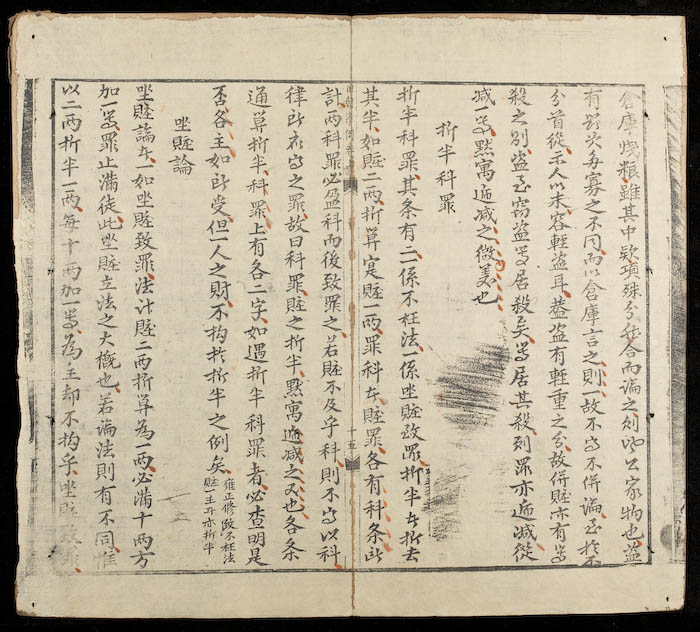 倉庫錢粮雖其中欵項殊分合而論之則皆公家物也盜
有多寡之不同而以倉庫言之則一故不得不併論至於不
分首從示人以未容輕盜耳葢盜有輕重之分故併賍亦有等
殺之別盜至竊盜等居殺矣等居其殺則罪亦遞減從
減等黙寓遞減之微義也
折半科罪
折半科罪其条有二一係不枉法一係坐賍致罪折半者折去
其半如賍二兩折算寔賍一兩罪科者賍罪各有科条此
計兩科罪必盈科而後致罪之若賍不及乎科則不得以科
律所在得之罪故曰科罪賍之折半黙寓遞減之又也各条
通算折半科罪上有各二字如遇折半科罪者必查明是
否各主如所受但一人之財不拘於折半之例矣雍正修改不枉法
賍一主者亦折半
坐賍論
坐賍論者如坐賍致罪法計賍二兩折算為一兩必滿十兩方
加一等罪止滿徒此坐賍立法之大概也若論法則有不同惟
以二兩折半一兩每十兩加一等為主却不拘乎坐賍致罪
十五